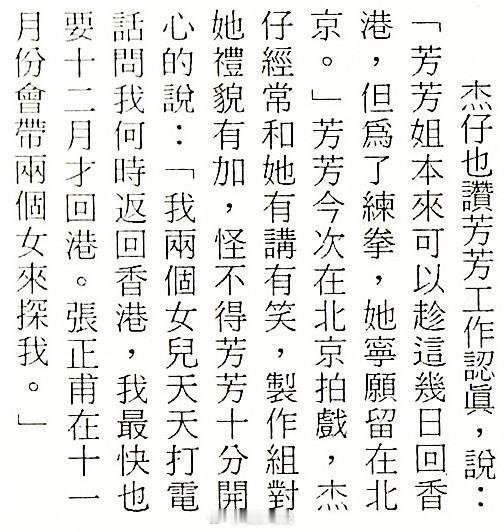 杰仔也讚芳芳工作認眞，說：
「芳芳姐本來可以趁這幾日回香
港，但爲了練拳，她寧願留在北
京。」芳芳今次在北京拍戲，杰
仔經常和她有講有笑，製作組對
她禮貌有加，怪不得芳芳十分開
心的說：「我兩個女兒天天打電
話問我何時返回香港，我最快也
要十二月才回港。張正甫在十一
月份會帶兩個女來探我。」